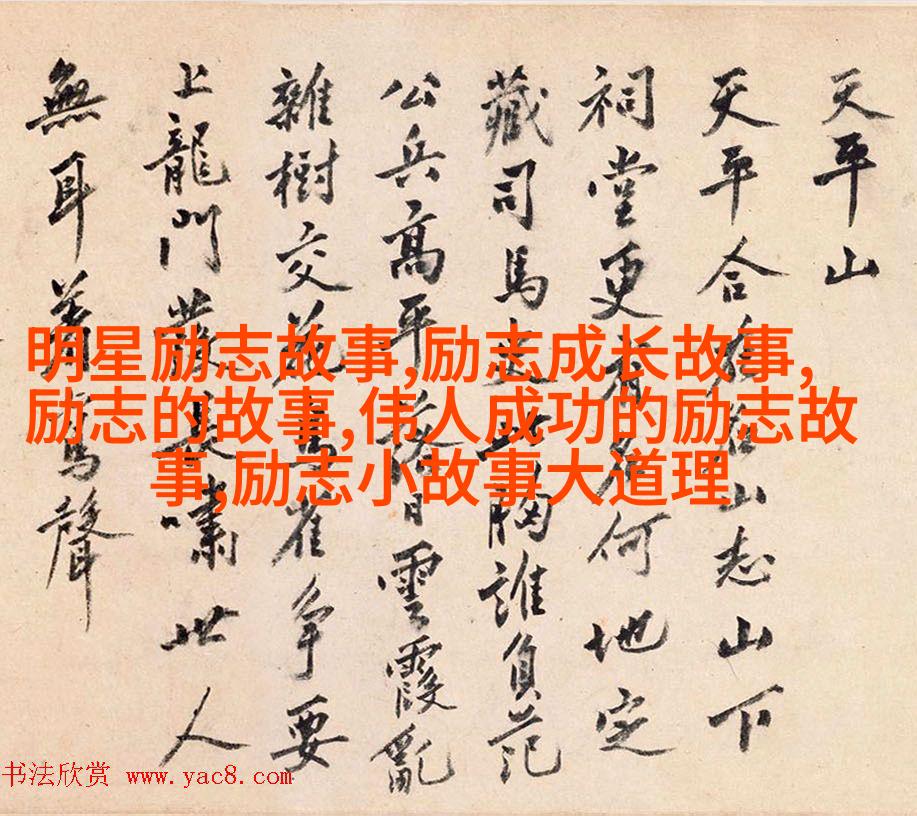 天平山
天平合山志山下
祠堂更有何地定
藏司馬史此胸誰負范
公兵高平日雲霞亂
雜樹交花鳥雀争要
上龍門發長嘯世人
無耳聲
明星励志故事,励志成长故事,
励志的故事,伟人成功的励志故
事,励志小故事大道理
书法欣赏 www.yac8.com